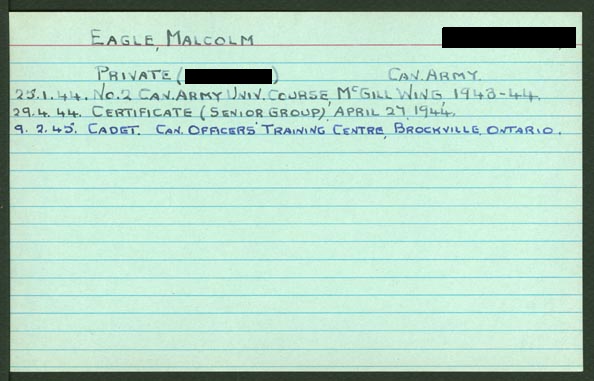 EAGLE, MALCOLM
PRIVATE ( ) CAN. ARMY.
25.1.44. No. 2 CAN. ARMY UNIV. COURSE, McGILL WING 1943-44.
29.4.44. CERTIFICATE (SENIOR GROUP), APRIL 27, 1944.
9.2.45. CADET. CAN. OFFICERS' TRAINING CENTRE, BROCKVILLE, ONTARIO.